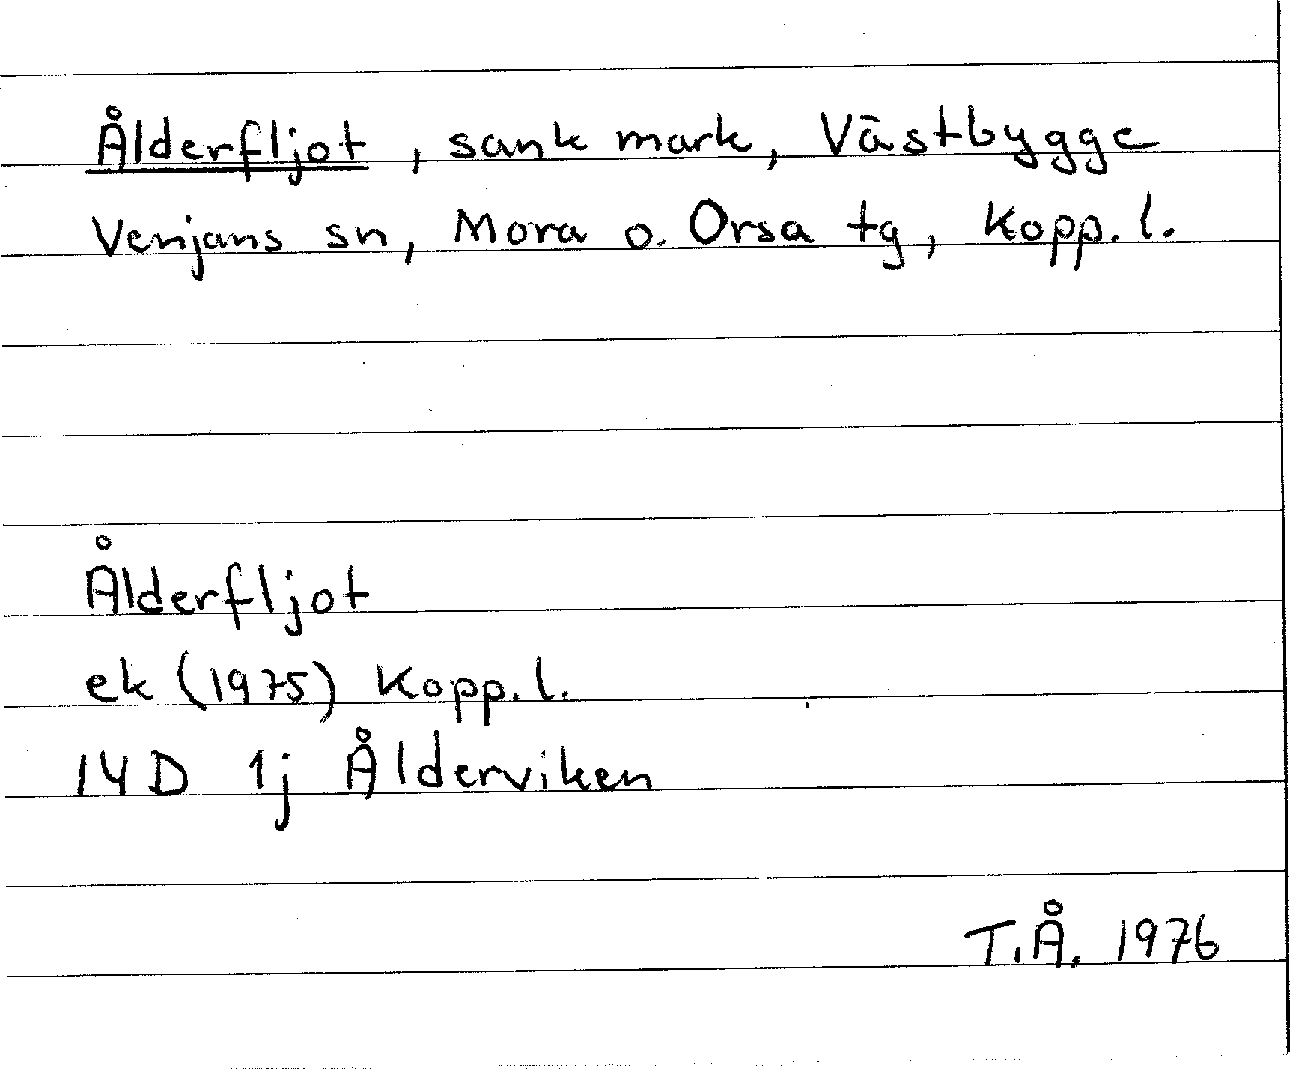 Ålderfljot, sank mark, Västbygge
Venjans sn, Mora o. Orsa tg, Kopp. l.
Ålderfljot
ek (1975) Kopp. l.
14 D 1j Ålderviken
T.Å. 1976